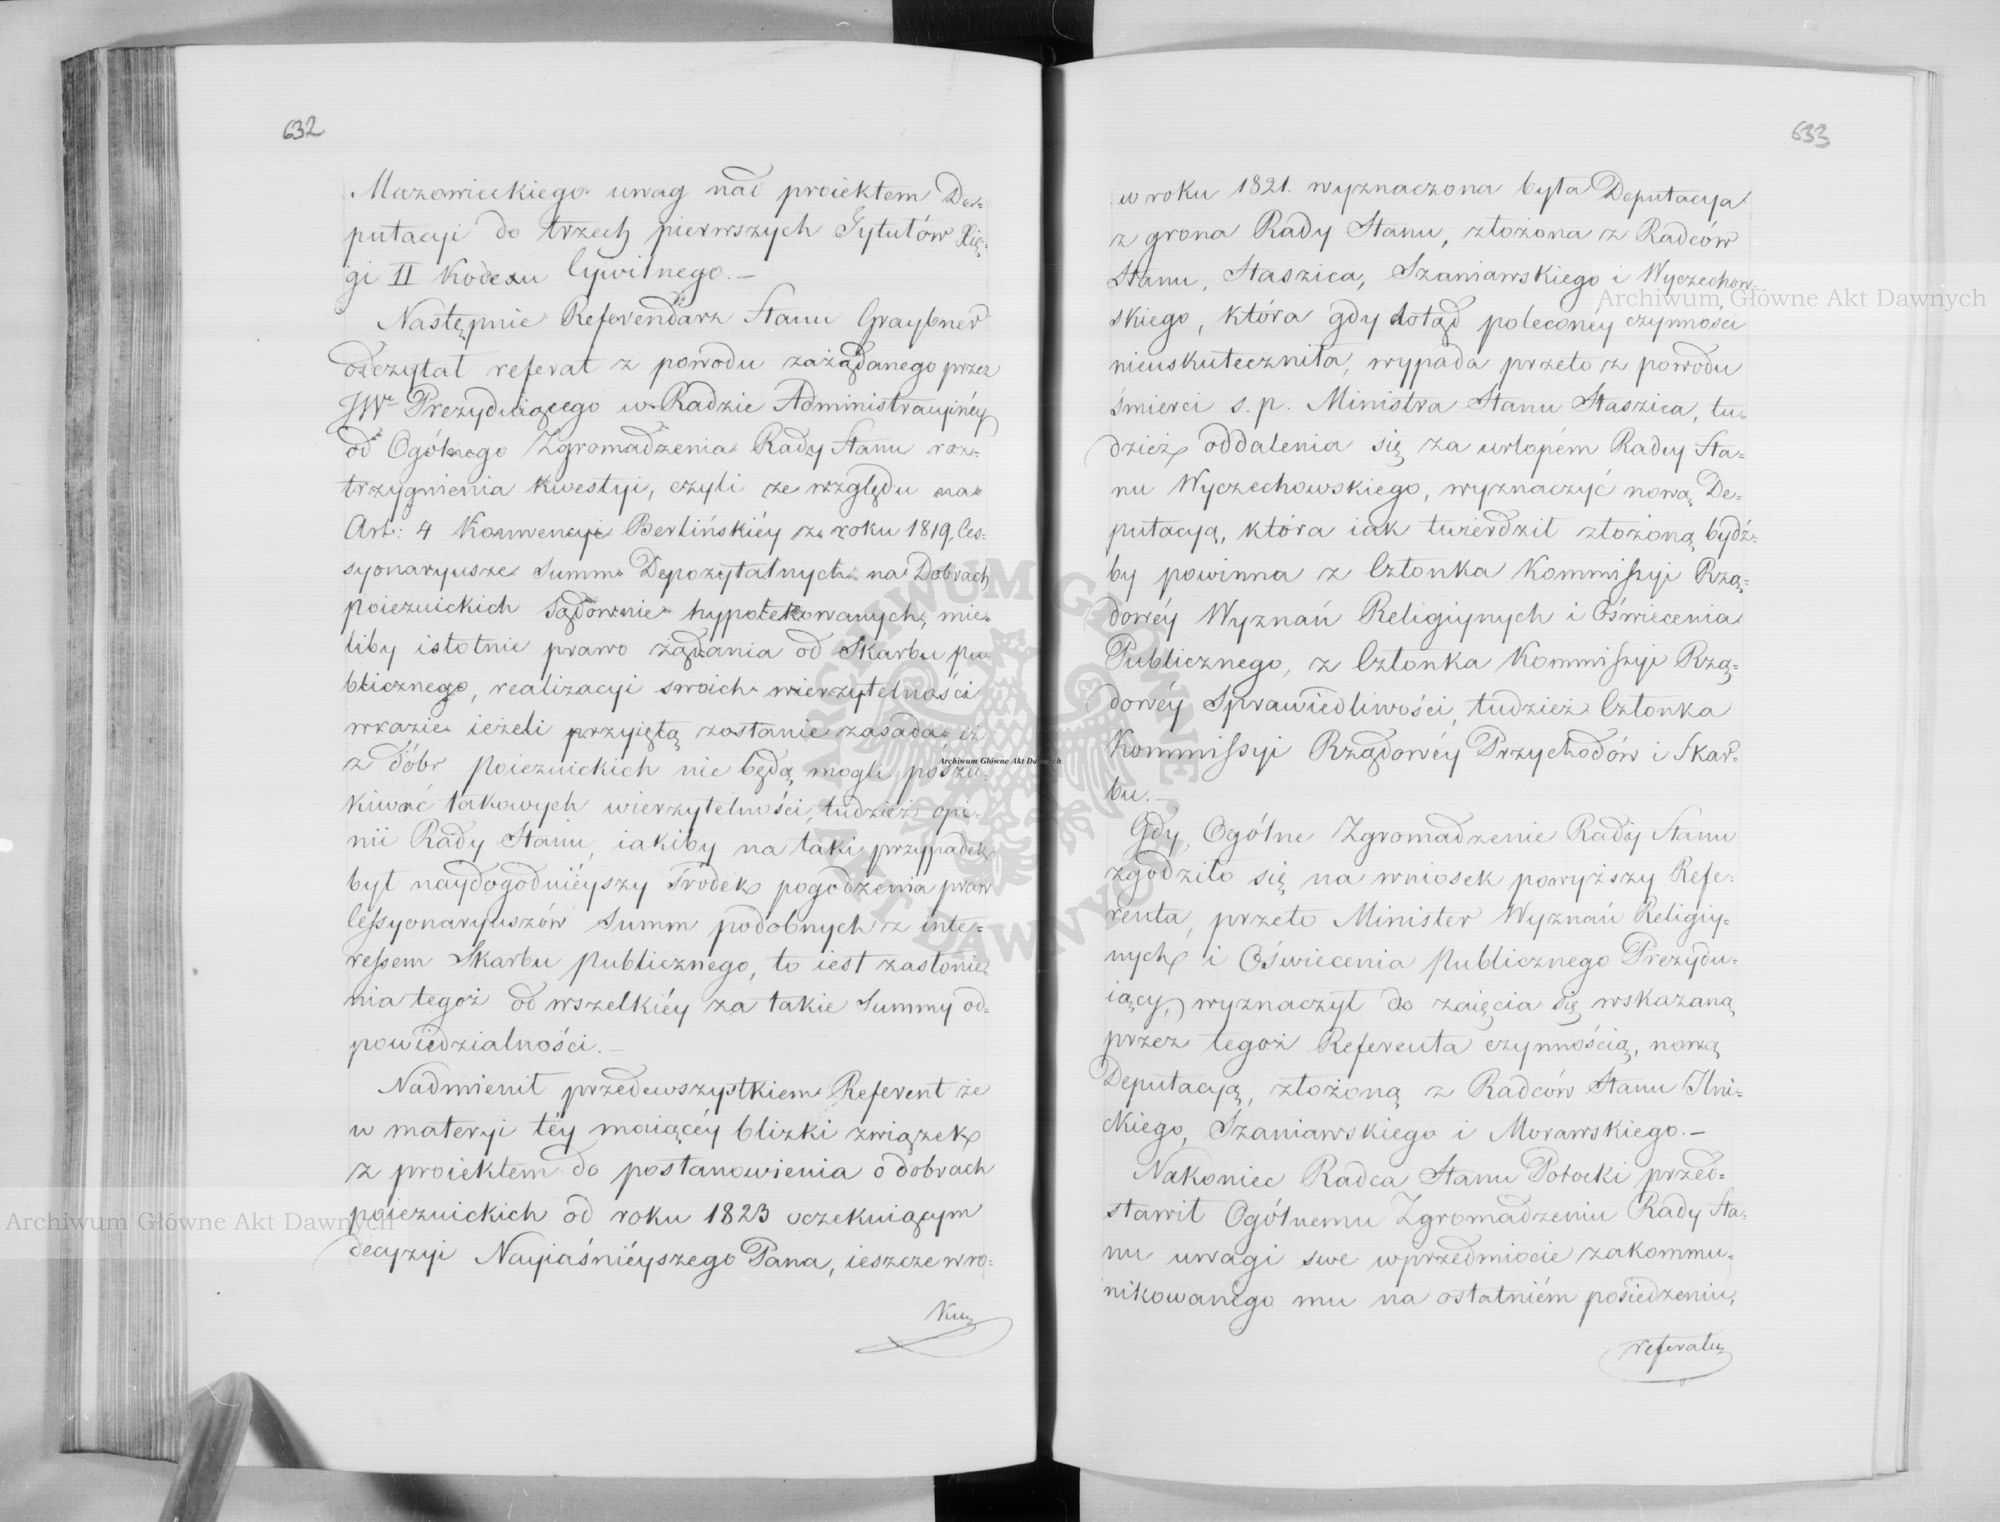 632
Mazowieckiego uwag nad proiektem De-
putacyi do trzech pierwszych Tytułów Xię-
gi II Kodexu Cywilnego.—
Następnie Referendarz Stanu Graybner
odczytał referat z powodu zażądanego przez
JWo Prezyduiącego w Radzie Administracyinéy
od Ogólnego Zgromadzenia Rady Stanu roz-
trzygnienia kwestyi, czyli ze względu na
Art: 4 Konwencyi Berlińskiéy z roku 1819, Ces-
syonaryusze Summ Depozytalnych na Dobrach
poiezuickich sądownie hypotekowanych, mie-
liby istotnie prawo żądania od Skarbu pu-
blicznego, realizacyi swoich wierzytelności
w razie ieżeli przyiętą zostanie zasada iż
z dóbr poiezuickich nie będą mogli poszu-
kiwać takowych wierzytelności, tudzież opi-
nii Rady Stanu, iakiby na taki przypadek
był naydogodnieyszy srodek pogodzenia praw
Cessyonaryuszów Summ podobnych z inte-
ressem Skarbu publicznego, to iest zasłonie-
nia tegoż od wszelkiéy za takie Summy od-
powiedzialności.—
Nadmienił przedewszystkiem Referent że
w materyi téy maiącéy blizki związek
z proiektem do postanowienia o dobrach
poiezuickich od roku 1823 oczekuiącym
decyzyi Nayiaśniéyszego Pana, ieszcze w ro-
633
w roku 1821. wyznaczona była Deputacya
z grona Rady Stanu, złożona z Radców
Stanu, Staszica, Szaniawskiego i Wyczechow-
skiego, która gdy dotąd poleconéy czynności
nieuskuteczniła, wypada przeto z powodu
śmierci s.p. Ministra Stanu Staszica, tu-
dzież oddalenia się za urlopém Radcy Sta-
nu Wyczechowskiego, wyznaczyć nową De-
putacyą, która iak twierdził złożoną bydź-
by powinna z Członka Kommissyi Rzą-
dowéy Wyznań Religiynych i Oświecenia
Publicznego, z Członka Kommissyi Rzą-
dowéy Sprawiedliwości, tudzież Członka
Kommissyi Rządowéy Przychodów i Skar-
bu.—
Gdy Ogólne Zgromadzenie Rady Stanu
zgodziło się na wniosek powyższy Refe-
renta, przeto Minister Wyznań Religiy-
nych i Oświecenia Publicznego Prezydu-
iący, wyznaczył do zaięcia się wskazaną
przez tegoż Referenta czynnością, nową
Deputacyą, złożoną z Radców Stanu Ilni-
ckiego, Szaniawskiego i Morawskiego.—
Nakoniec Radca Stanu Potocki przed-
stawił Ogólnemu Zgromadzeniu Rady Sta-
nu uwagi swe w przedmiocie zakommu-
nikowanego mu na ostatniém posiedzeniu,
referatu
Archiwum Główne Akt Dawnych
Archiwum Główne Akt Dawnych
Archiwum Główne Akt Dawnych
ARCHIWUM GŁÓWNE AKT DAWNYCH